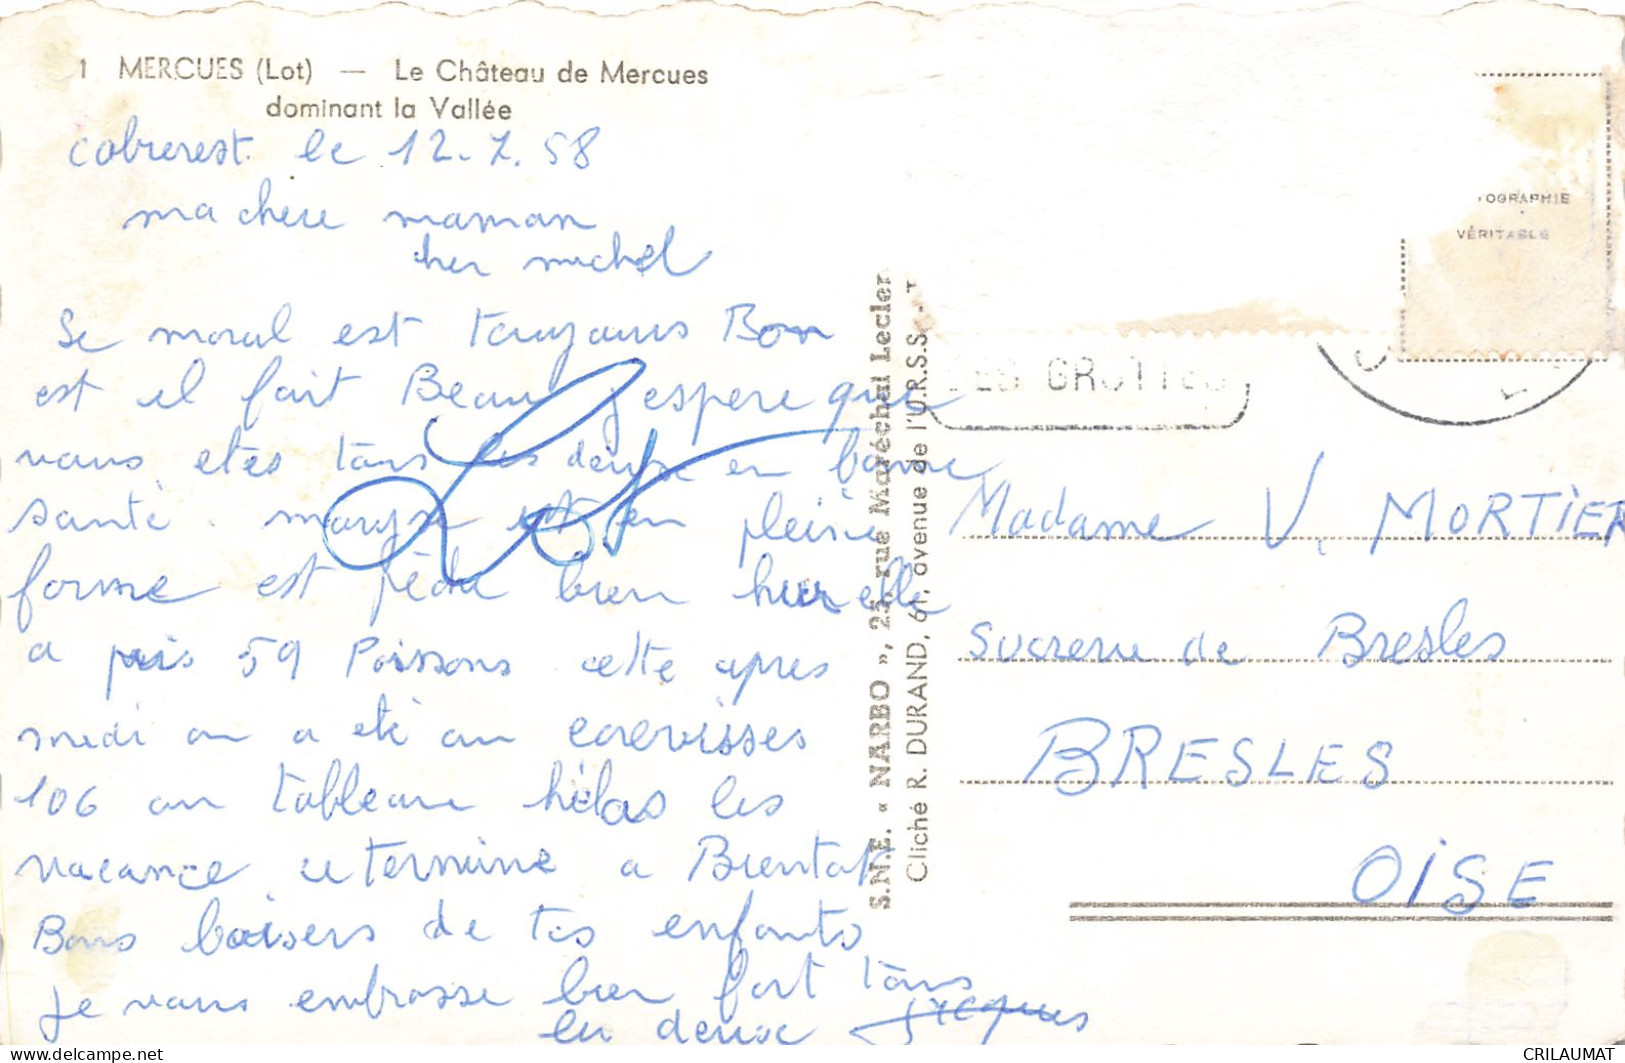 1 MERCUES (Lot) — Le Château de Mercues
dominant la Vallée
cabrerest le 12.7.58
ma chere maman
cher michel
Se moral est toujours Bon
est il fait Beau j'espere que
vous etes tous les deux en bonne
santé. maryse est en pleine
forme est pêche bien hier elle
a pris 59 Poissons cette apres
midi on a eté au ecrevisses
106 au tableau hélas les
vacance ce termine a Bientot
Bons baisers de tes enfants
Je vous embrasse bien fort tous
les deux jacques
Lot
S.N.E. « NARBO », 25, rue Maréchal Lecler
Cliché R. DURAND, 61, avenue de l'U.R.S.S. - T
OGRAPHIE
VÉRITABLE
DES GROTTES
Madame V. MORTIER
Sucrerie de Bresles
BRESLES
OISE
delcampe.net
CRILAUMAT